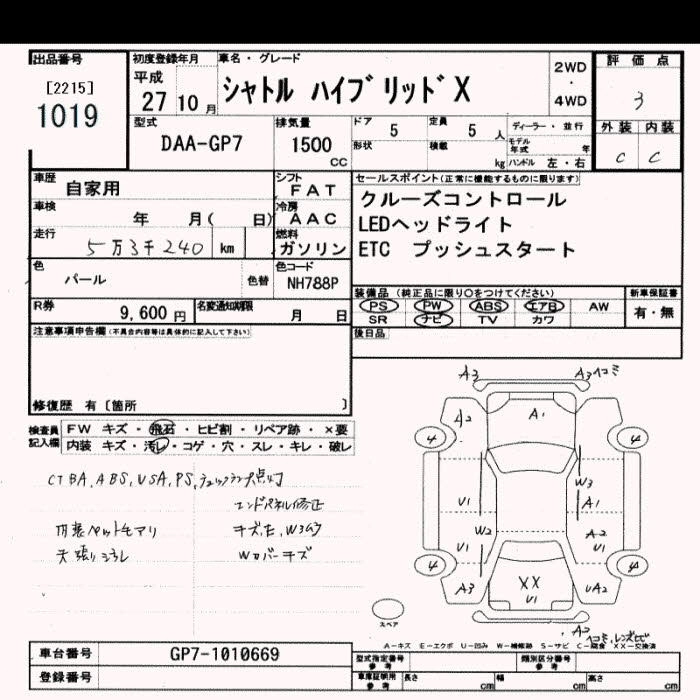 出品番号 初度登録年月 車名・グレード 2WD・4WD 評価点
[2215]
1019
平成
27 10月
シャトル ハイブリッドX
3
型式 DAA-GP7
排気量 1500 CC
ドア 5 定員 5 人
形状 積載 kg
ディーラー・並行
モデル年式 年
ハンドル 左・右
外装 内装
C C
車歴 自家用
シフト FAT
セールスポイント(正常に機能するものに限ります)
車検 年 月( 日)
冷房 AAC
クルーズコントロール
走行 5万3千240 km
燃料 ガソリン
LEDヘッドライト
ETC プッシュスタート
色 パール 色替
色コード NH788P
装備品 (純正品に限り○をつけてください) 新車保証書
PS PW ABS エアB AW 有・無
SR ナビ TV カワ
R券 9,600円
名変通知期限 月 日
後日品
注意事項申告欄(不具合内容等は具体的に記入して下さい)
修復歴 有〔箇所 〕
検査員記入欄
FW キズ・飛石・ヒビ割・リペア跡・×要
内装 キズ・汚レ・コゲ・穴・スレ・キレ・破レ
CTBA,ABS,VSA,PS,
エンドパネル修正
内装ペット毛アリ
天張り
Wカバーキズ
A3
A3 ヘコミ
A2
A1
4
4
W3
U1
A1
W2
A2
U1
U1
4
4
A3
XX
U1
UA2
スペア
A2
A-キズ E-エクボ U-凹み W-補修跡 S-サビ C-腐食 XX-交換済
車台番号 GP7-1010669
型式指定番号 参考 類別区分番号 参考
登録番号
車庫証明用 参考 長さ cm 幅 cm 高さ cm